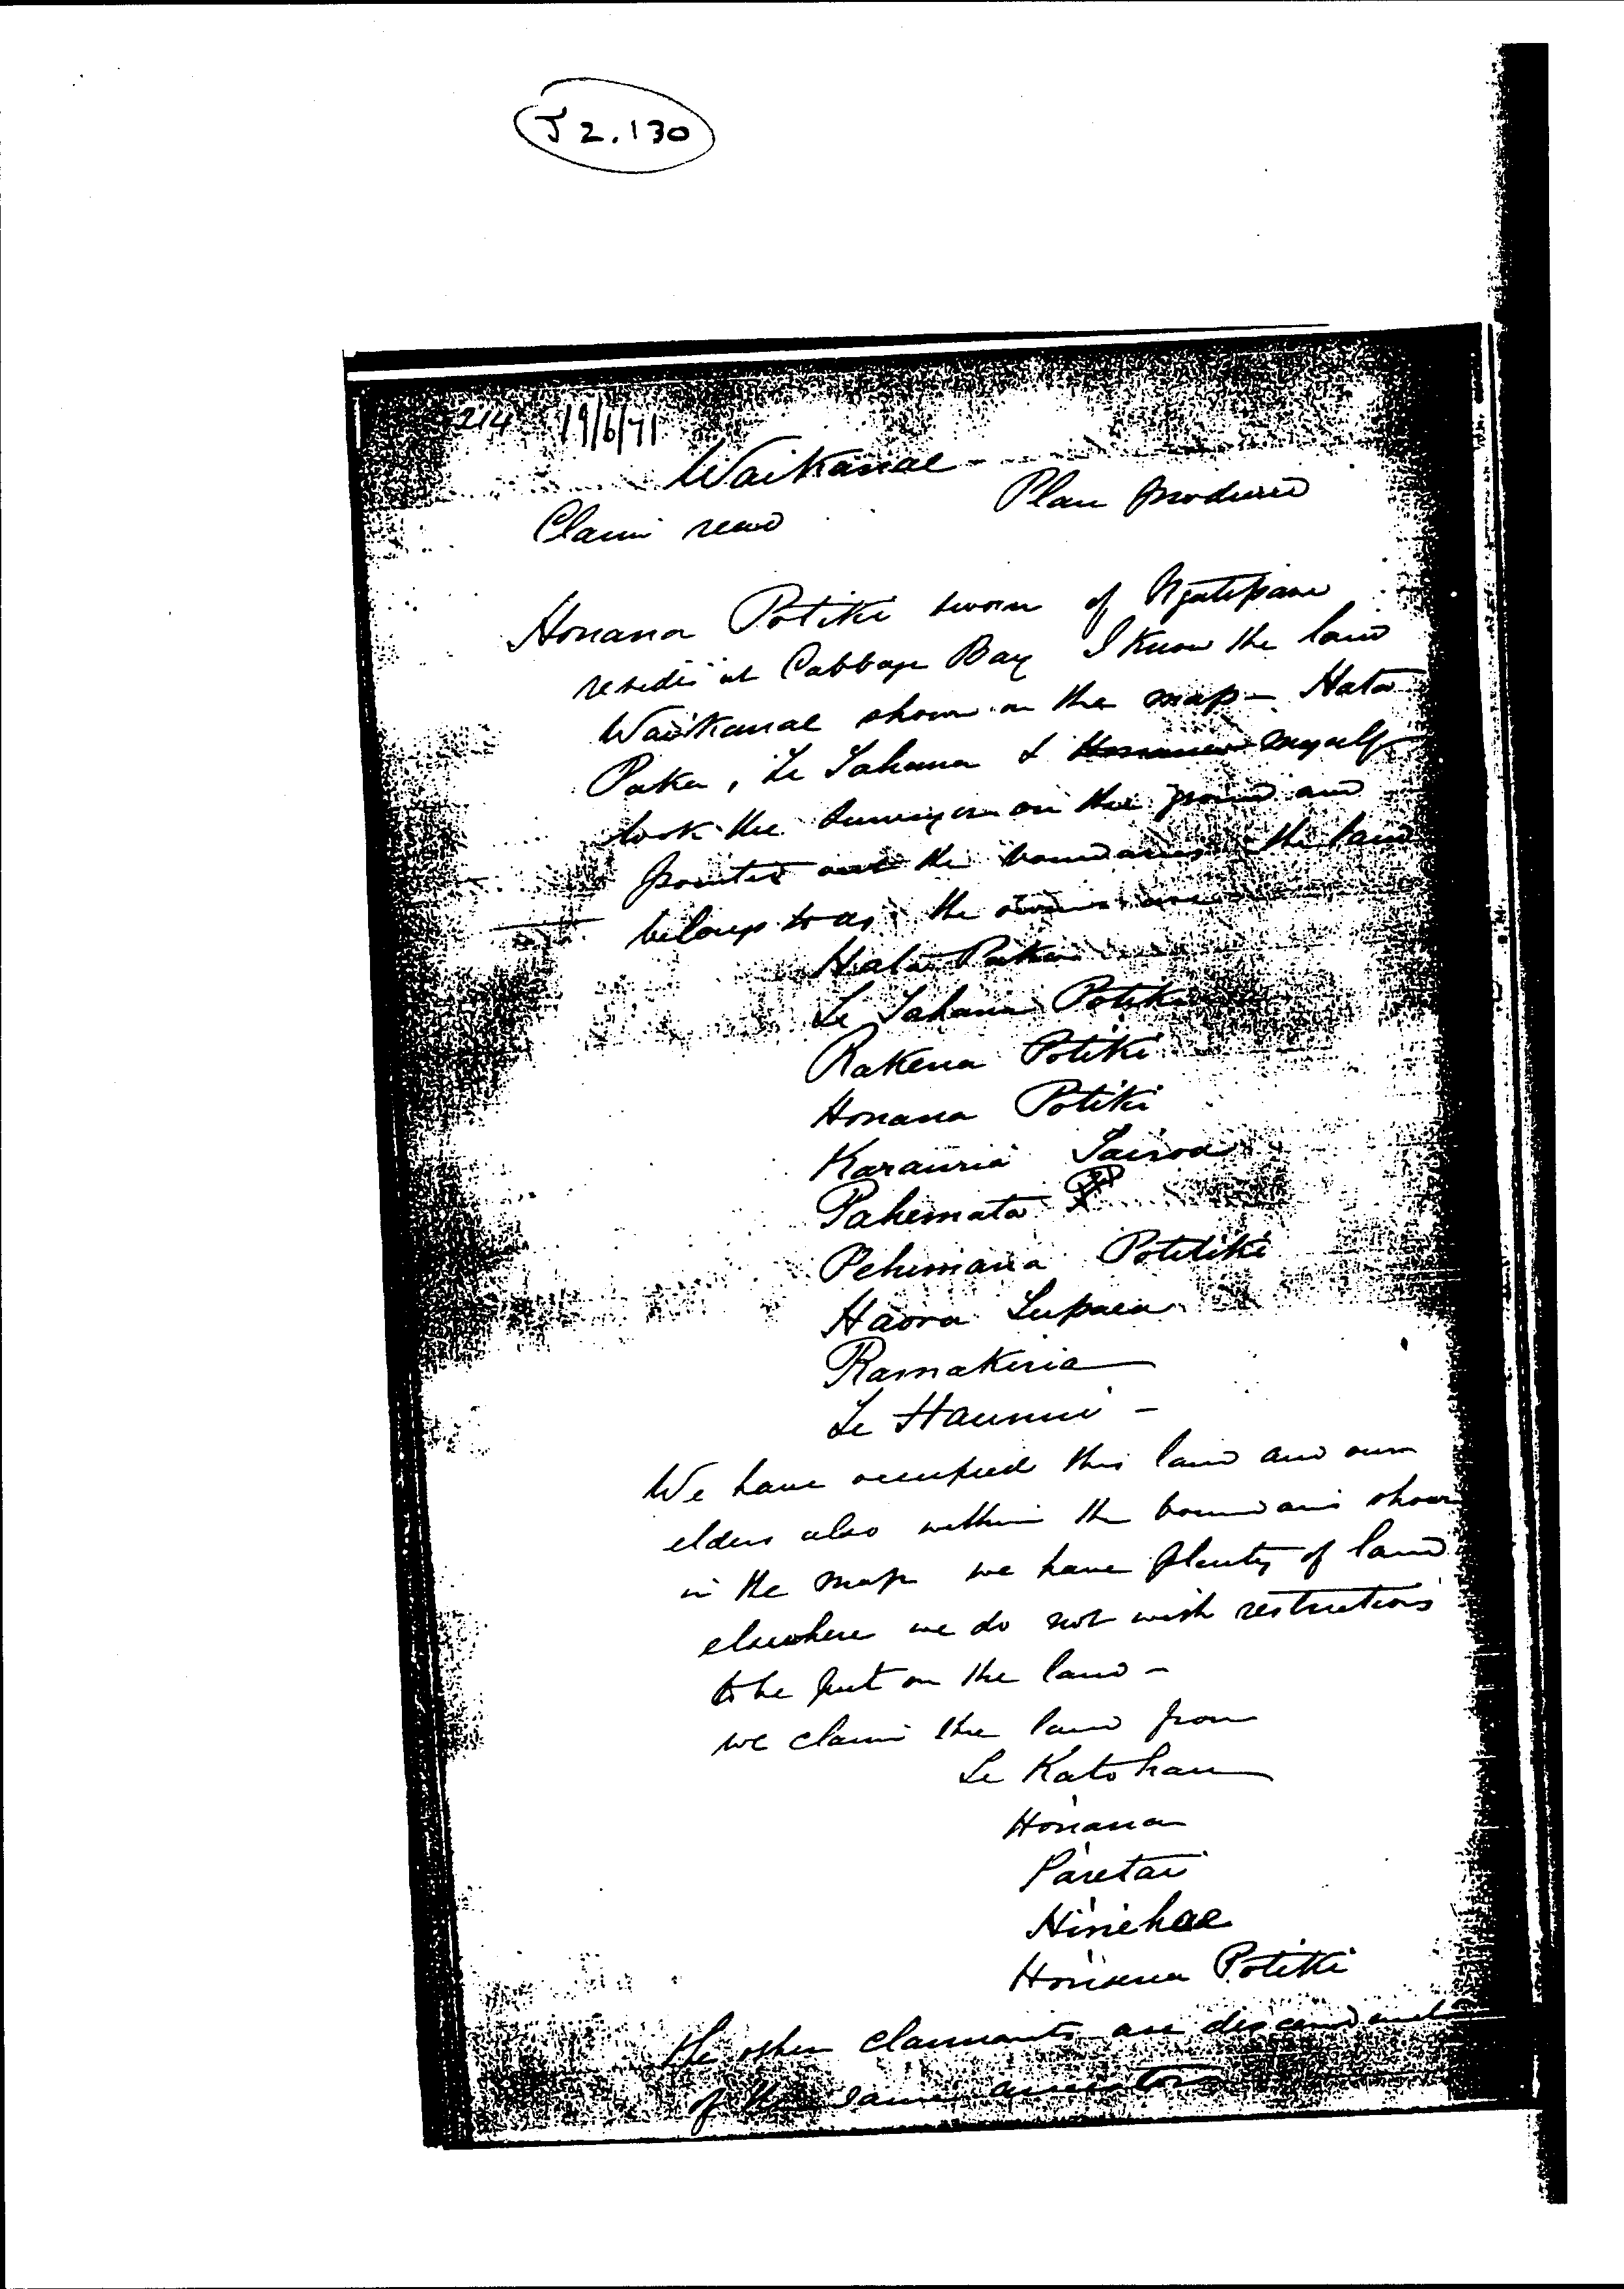 J 2.130
214 19/6/71
Waikanae
Plan produced
Claim read
Honana Potiki sworn of Ngatipare
reside at Cabbage Bay I know the land
Waikanae shown on the map - Hata
Paka, Te Tahana & Honana myself
took the Surveyor on the ground and
pointed out the boundaries the land
belongs to us, the
Hata Paka
Te Tahana Potiki
Rakena Potiki
Honana Potiki
Karauria Tairoa
Pahemata
Pehimana Potitiki
Haora Tupaea
Ramakiria
Te Haunui -
We have occupied this land and our
elders also within the boundaries shown
in the map we have plenty of land
elsewhere we do not wish restrictions
to be put on the land -
we claim the land from
Te Katohau
Honana
Paretai
Hinehae
Honana Potiki
the other claimants are descendants
of the same ancestors